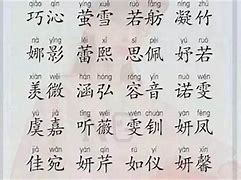 qiǎo qìn yíng xuě ruò fǎng níng zhú
巧沁 萤雪 若舫 凝竹
nà yǐng lěi xī sī pèi yú ruò
娜影 蕾熙 思佩 妤若
měi wēi hán hóng róng yīn nuò wén
美微 涵弘 容音 诺雯
yú jiā tīng wēi wén chuàn yán fèng
虞嘉 听薇 雯钏 妍凤
jiā wǎn yán qín rú yí yán xīn
佳宛 妍芹 如仪 妍馨